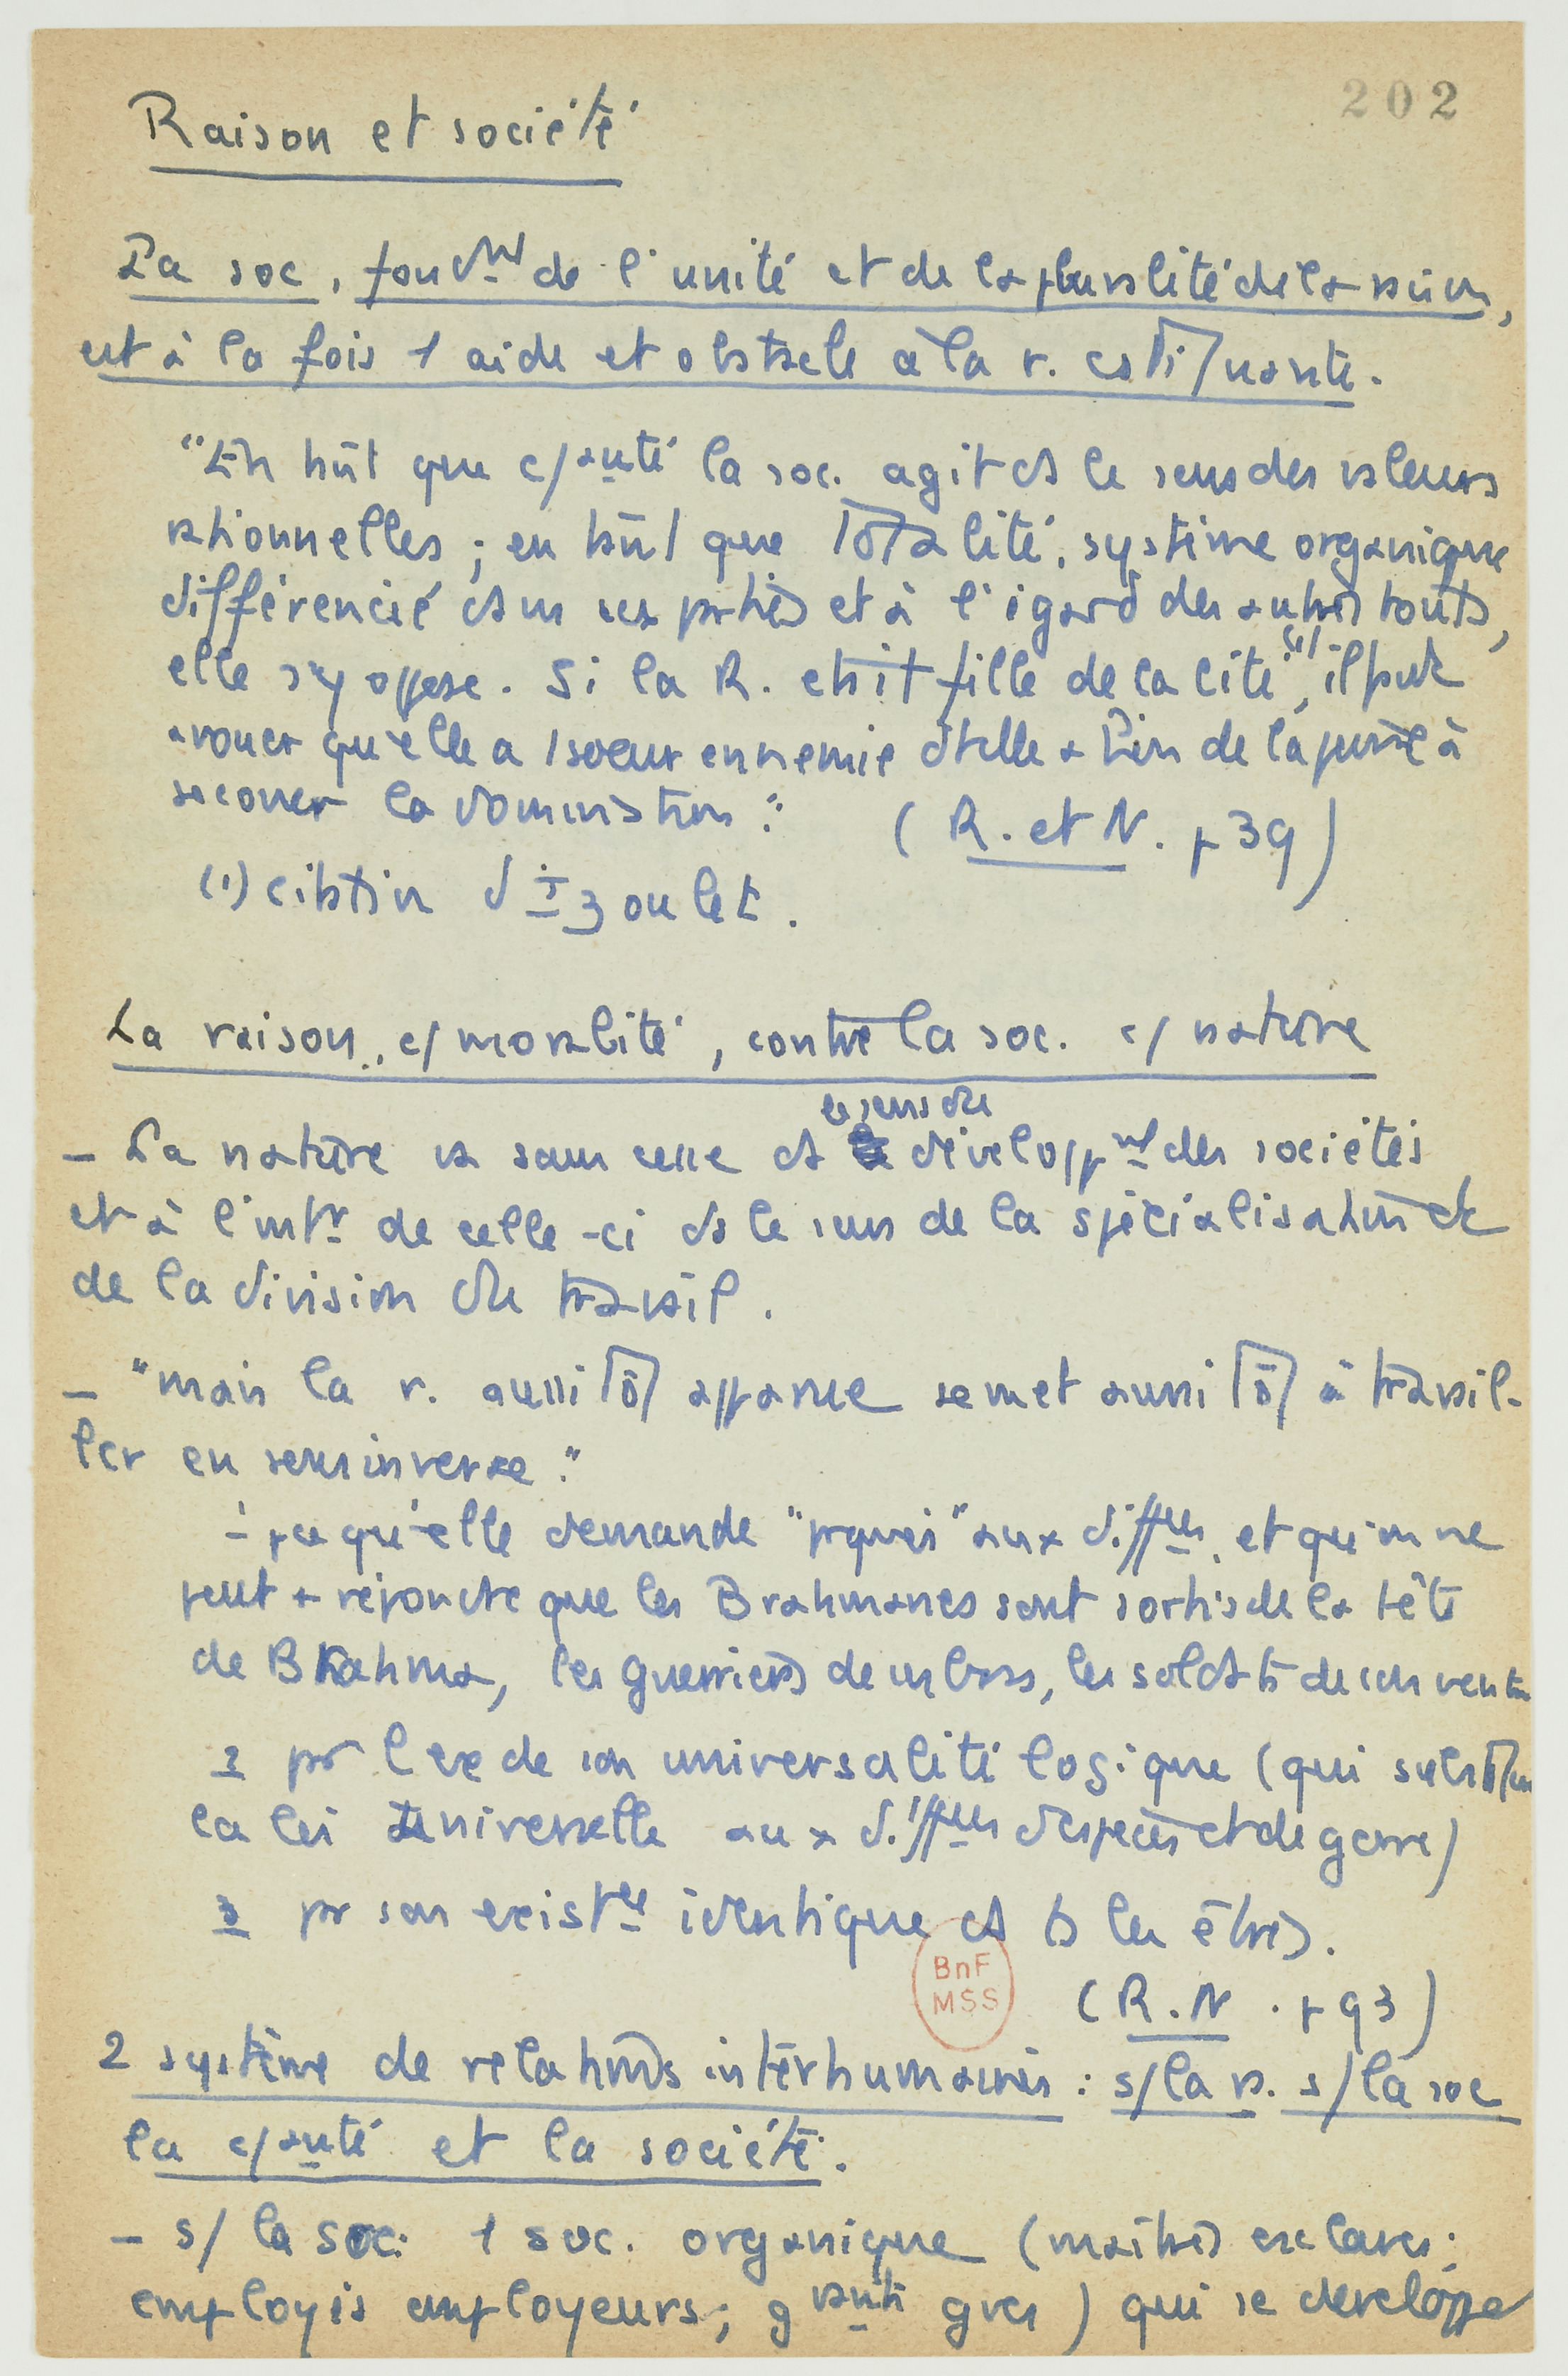 202
Raison et société
La soc, fondmt de l'unité et de la pluralité de la raison,
est à la fois 1 aide et obstacle à la r. constituante.
"En tant que c/auté la soc. agit ds le sens des valeurs
rationnelles ; en tant que totalité, système organique
différencié dans ses parties et à l'égard des autres touts,
elle s'y oppose. Si la R. était fille de la cité (1), il faut
avouer qu'elle a 1 soeur ennemie dt elle a bien de la peine à
secouer la domination". (R. et N. p 39)
(1) citation d'Izoulet.
La raison, c/ moralité, contre la soc. c/ nature
le sens du
- La nature va sans cesse ds développmt des sociétés
et à l'intr de celle-ci ds le sens de la spécialisation et
de la division du travail.
- "mais la r. aussitôt apparue se met aussitôt à travail-
ler en sens inverse."
1 pce qu'elle demande "prquoi" aux diffces, et qu'on ne
peut répondre que les Brahmanes sont sortis de la tête
de Brahma, les guerriers de ses bras, les soldats de son ventre
2 pr l'ex de son universalité logique (qui substitue
la loi universelle aux diffces d'espèces et de genre)
3 pr son existce identique ds ts les êtres.
BnF
MSS
(R. N. p 93)
2 système de relations interhumaines : s/ la r. s/ la soc
la c/auté et la société.
- s/ la soc. 1 soc. organique (maîtres esclaves ;
employés employeurs ; gvants gvés) qui se développe